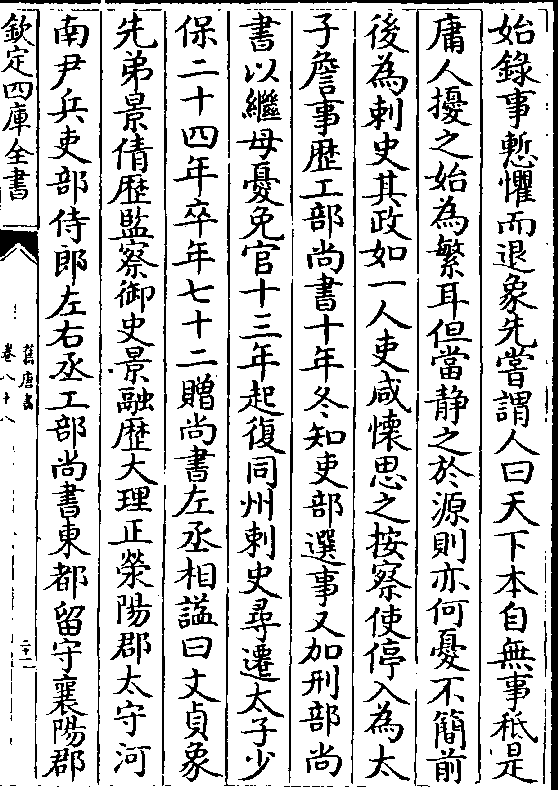 始錄事慙懼而退象先嘗謂人曰天下本自無事秖是
庸人擾之始為繁耳但當靜之於源則亦何憂不簡前
後為刺史其政如一人吏咸懷思之按察使停入為太
子詹事歴工部尚書十年冬知吏部選事又加刑部尚
書以繼母憂免官十三年起復同州刺史尋遷太子少
保二十四年卒年七十二贈尚書左丞相謚曰文貞象
先弟景倩歴監察御史景融歴大理正滎陽郡太守河
南尹兵吏部侍郎左右丞工部尚書東都留守襄陽郡
欽定四庫全書
舊唐書
卷八十八